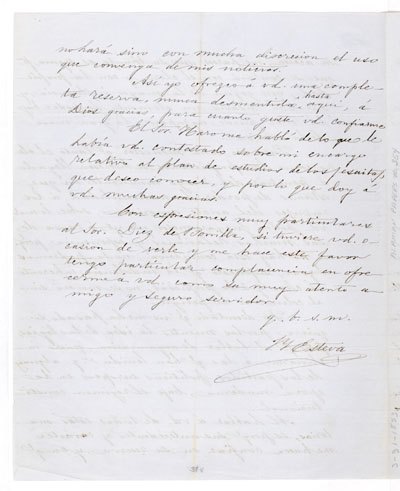 no hará sino con mucha discresion el uso
que convenga de mis noticias.
Así yo ofrezco á vd. una comple-
ta reserva, nunca desmentida hasta aquí, á
Dios gracias, para cuanto guste vd confiarme
El Sor. Haro me habló de lo que le
había vd. contestado sobre mi encargo
relativo al plan de estudios de los jesuitas,
que deseo conocer, y por lo que doy á
vd. muchas gracias.
Con espresiones muy particulares
al Sor. Diez de Bonilla, si tuviere vd. o-
casion de verle y me hace este favor
tengo particular complacencia en ofre-
cerme á vd como su muy atento a-
migo y seguro servidor
q. b. s. m.
Esteva